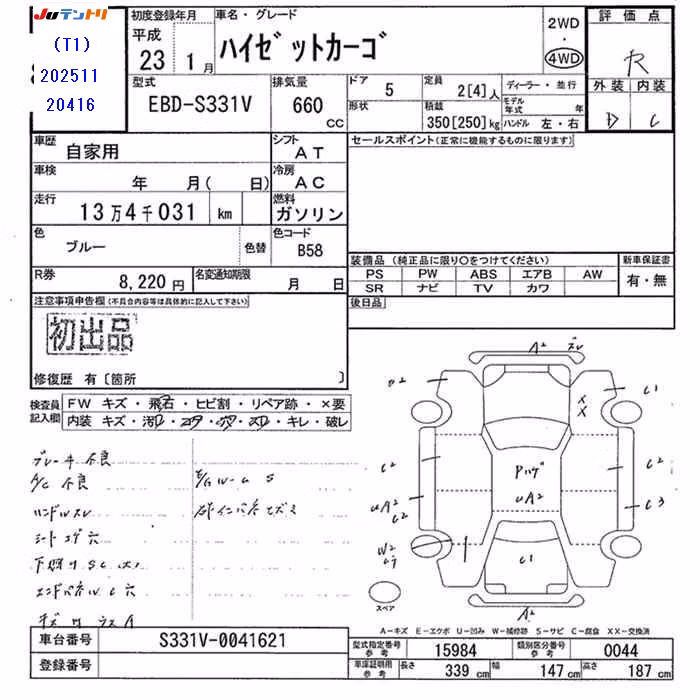 JUテントリ
(T1)
202511
20416
初度登録年月
平成
23 1月
車名・グレード
ハイゼットカーゴ
2WD
・
4WD
評価点
R
外装 内装
D C
型式
EBD-S331V
排気量
660
CC
ドア
5
形状
定員
2[4]人
積載
350[250]kg
ディーラー・並行
モデル年式 年
ハンドル 左・右
車歴
自家用
シフト
AT
車検
年 月( 日)
冷房
AC
走行
13万4千031 km
燃料
ガソリン
色
ブルー
色替
色コード
B58
R券
8,220円
名変通知期限
月 日
セールスポイント(正常に機能するものに限ります)
装備品(純正品に限り○をつけてください)
PS PW ABS エアB AW
SR ナビ TV カワ
新車保証書
有・無
後日品
注意事項申告欄(不具合内容等は具体的に記入して下さい)
初出品
修復歴 有〔箇所 〕
検査員記入欄
FW キズ・飛石・ヒビ割・リペア跡・×要
内装 キズ・汚レ・コゲ・穴・スレ・キレ・破レ
ブレーキ不良
A/C 不良
ハンドルスレ
シートコゲ穴
下廻りSC(大)
エンドパネルC穴
E/Gルーム S
A2
スレ
C1
XX
C2
C2
UA2
C2
C3
Pハゲ
UA2
W2
C1
A2
スペア
A-キズ E-エクボ U-凹み W-補修跡 S-サビ C-腐食 XX-交換済
車台番号
S331V-0041621
登録番号
型式指定番号参考
15984
類別区分番号参考
0044
車庫証明用参考
長さ 339cm 幅 147cm 高さ 187cm